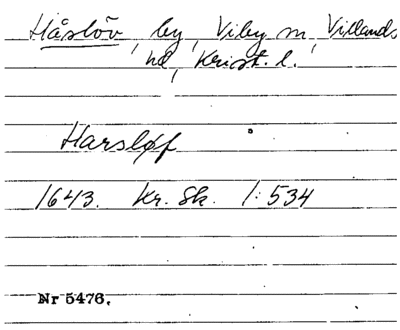 Håslöv, by, Viby m, Villands
hd, Krist. l.
Harsløf
1643. Kr. Sk. 1:534
Nr 5476.